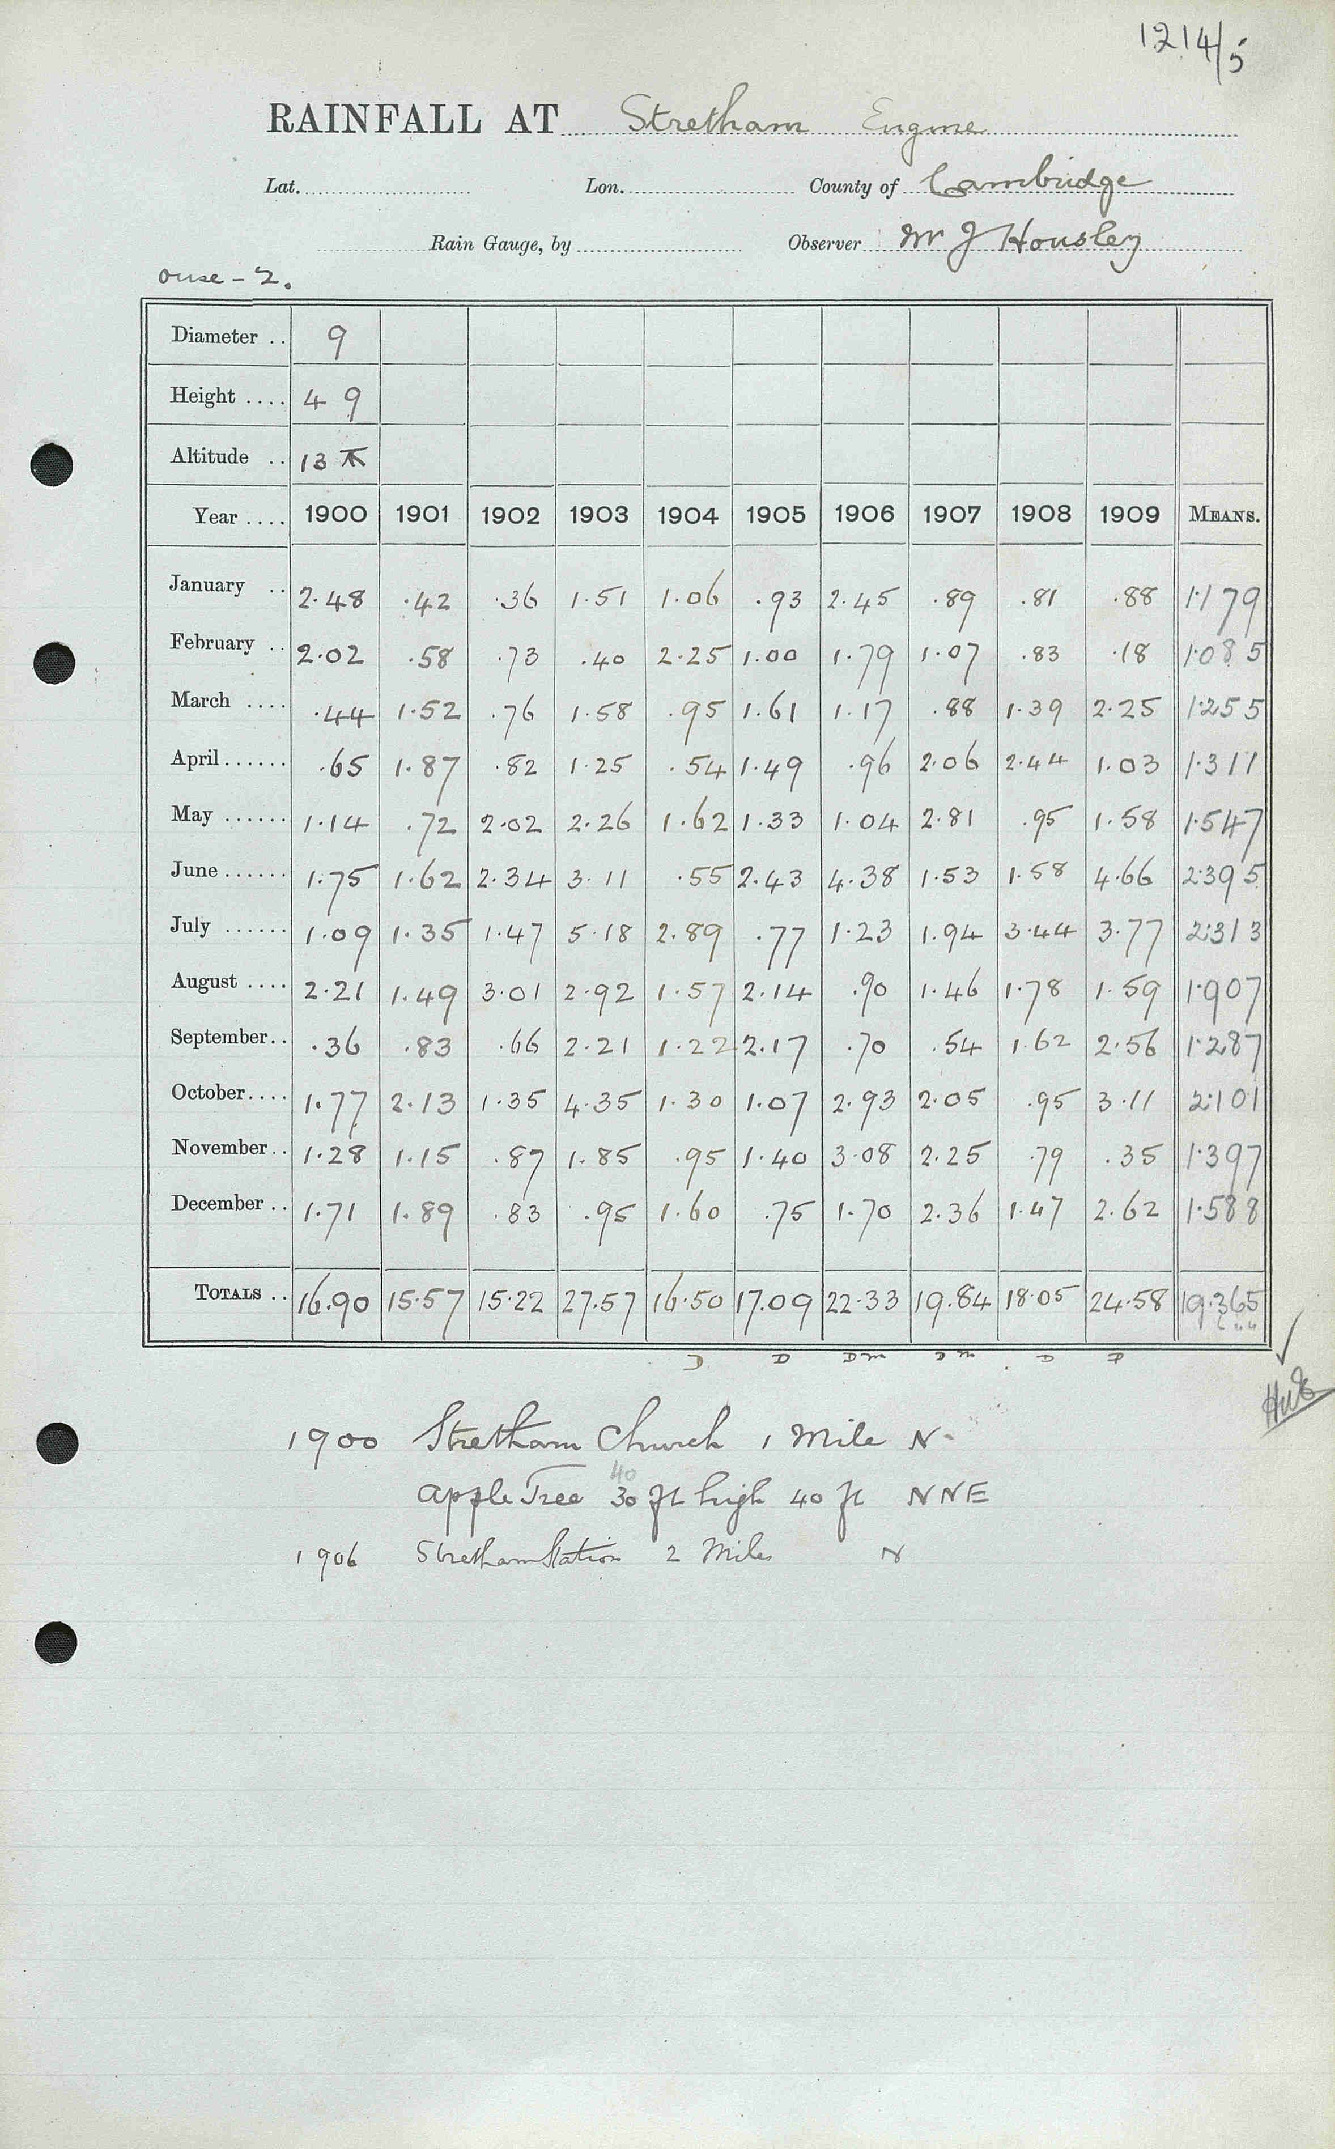 1214/5
RAINFALL AT Stretham Engine
Lat. Lon. County of Cambridge
Rain Gauge, by Observer Mr J Housley
Ouse - 2.
Diameter .. 9
Height .... 4 9
Altitude .. 13
Year .... 1900 1901 1902 1903 1904 1905 1906 1907 1908 1909 MEANS.
January .. 2.48 .42 .36 1.51 1.06 .93 2.45 .89 .81 .88 1.179
February .. 2.02 .58 .73 .40 2.25 1.00 1.79 1.07 .83 .18 1.085
March .... .44 1.52 .76 1.58 .95 1.61 1.17 .88 1.39 2.25 1.255
April ...... .65 1.87 .82 1.25 .54 1.49 .96 2.06 2.44 1.03 1.311
May ...... 1.14 .72 2.02 2.26 1.62 1.33 1.04 2.81 .95 1.58 1.547
June ...... 1.75 1.62 2.34 3.11 .55 2.43 4.38 1.53 1.58 4.66 2.395
July ...... 1.09 1.35 1.47 5.18 2.89 .77 1.23 1.94 3.44 3.77 2.313
August .... 2.21 1.49 3.01 2.92 1.57 2.14 .90 1.46 1.78 1.59 1.907
September.. .36 .83 .66 2.21 1.22 2.17 .70 .54 1.62 2.56 1.287
October.... 1.77 2.13 1.35 4.35 1.30 1.07 2.93 2.05 .95 3.11 2.101
November.. 1.28 1.15 .87 1.85 .95 1.40 3.08 2.25 .79 .35 1.397
December .. 1.71 1.89 .83 .95 1.60 .75 1.70 2.36 1.47 2.62 1.588
TOTALS .. 16.90 15.57 15.22 27.57 16.50 17.09 22.33 19.84 18.05 24.58 19.365
D D Dm Dm D D
1900 Stretham Church 1 Mile N.
40
Apple Tree 30 ft high 40 ft NNE
1906 Stretham Station 2 Miles N